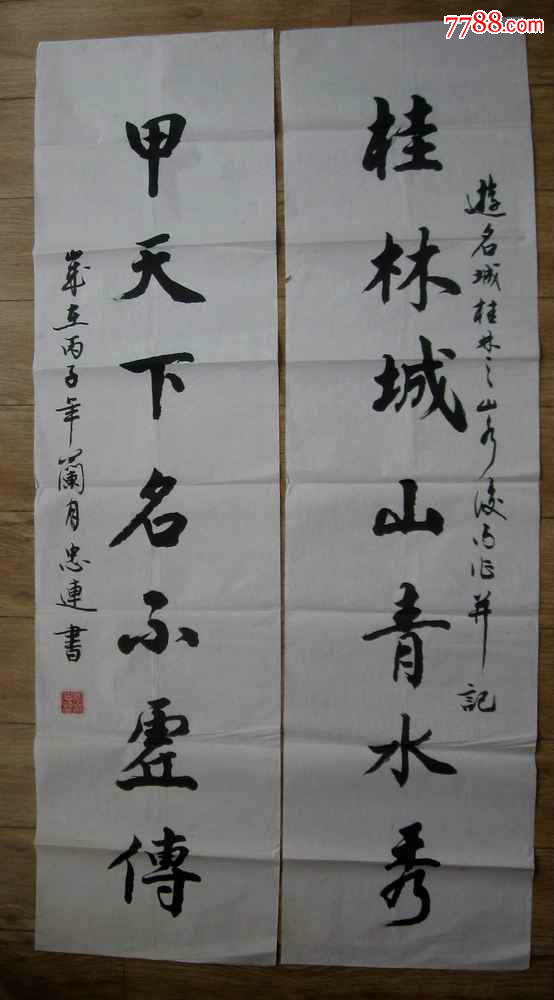 7788.com
遊名城桂林之山水後作并記
桂林城山青水秀
甲天下名不虛傳
歲在丙子年蘭月忠連書